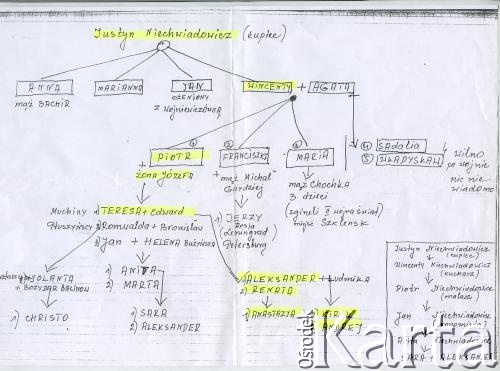 Justyn Niechwiadowicz (kupiec)
ANNA
mąż BACHIR
MARIANNA
JAN
OŻENIONY
Z WOJNIEWICZÓWNĄ
WINCENTY + AGATA
① PIOTR
+
żona Józefa
② FRANCISZKA
+ mąż Michał
③ MARIA
mąż Chochka
3 dzieci
(zginęli II wojna świat.)
④ SADALIA
⑤ WŁADYSŁAW
Wilno
po wojnie
nic nie
wiadomo
1) TERESA + Edward
2) Romualda + Bronisław
3) Jan + HELENA
JERZY
Leningrad
Petersburg
JOLANTA
+ BOŻYDAR
1) CHRISTO
1) ANITA
2) MARTA
1) SARA
2) ALEKSANDER
1) ALEKSANDER + Ludmiła
2) RENATA
1) ANASTAZJA
1) KIR
ANDREJ
Justyn Niechwiadowicz
(kupiec)
Wincenty Niechwiadowicz
(kucharz)
Piotr Niechwiadowicz
(malarz)
Jan Niechwiadowicz
SARA + ALEKSAN
ośrodek
Karta